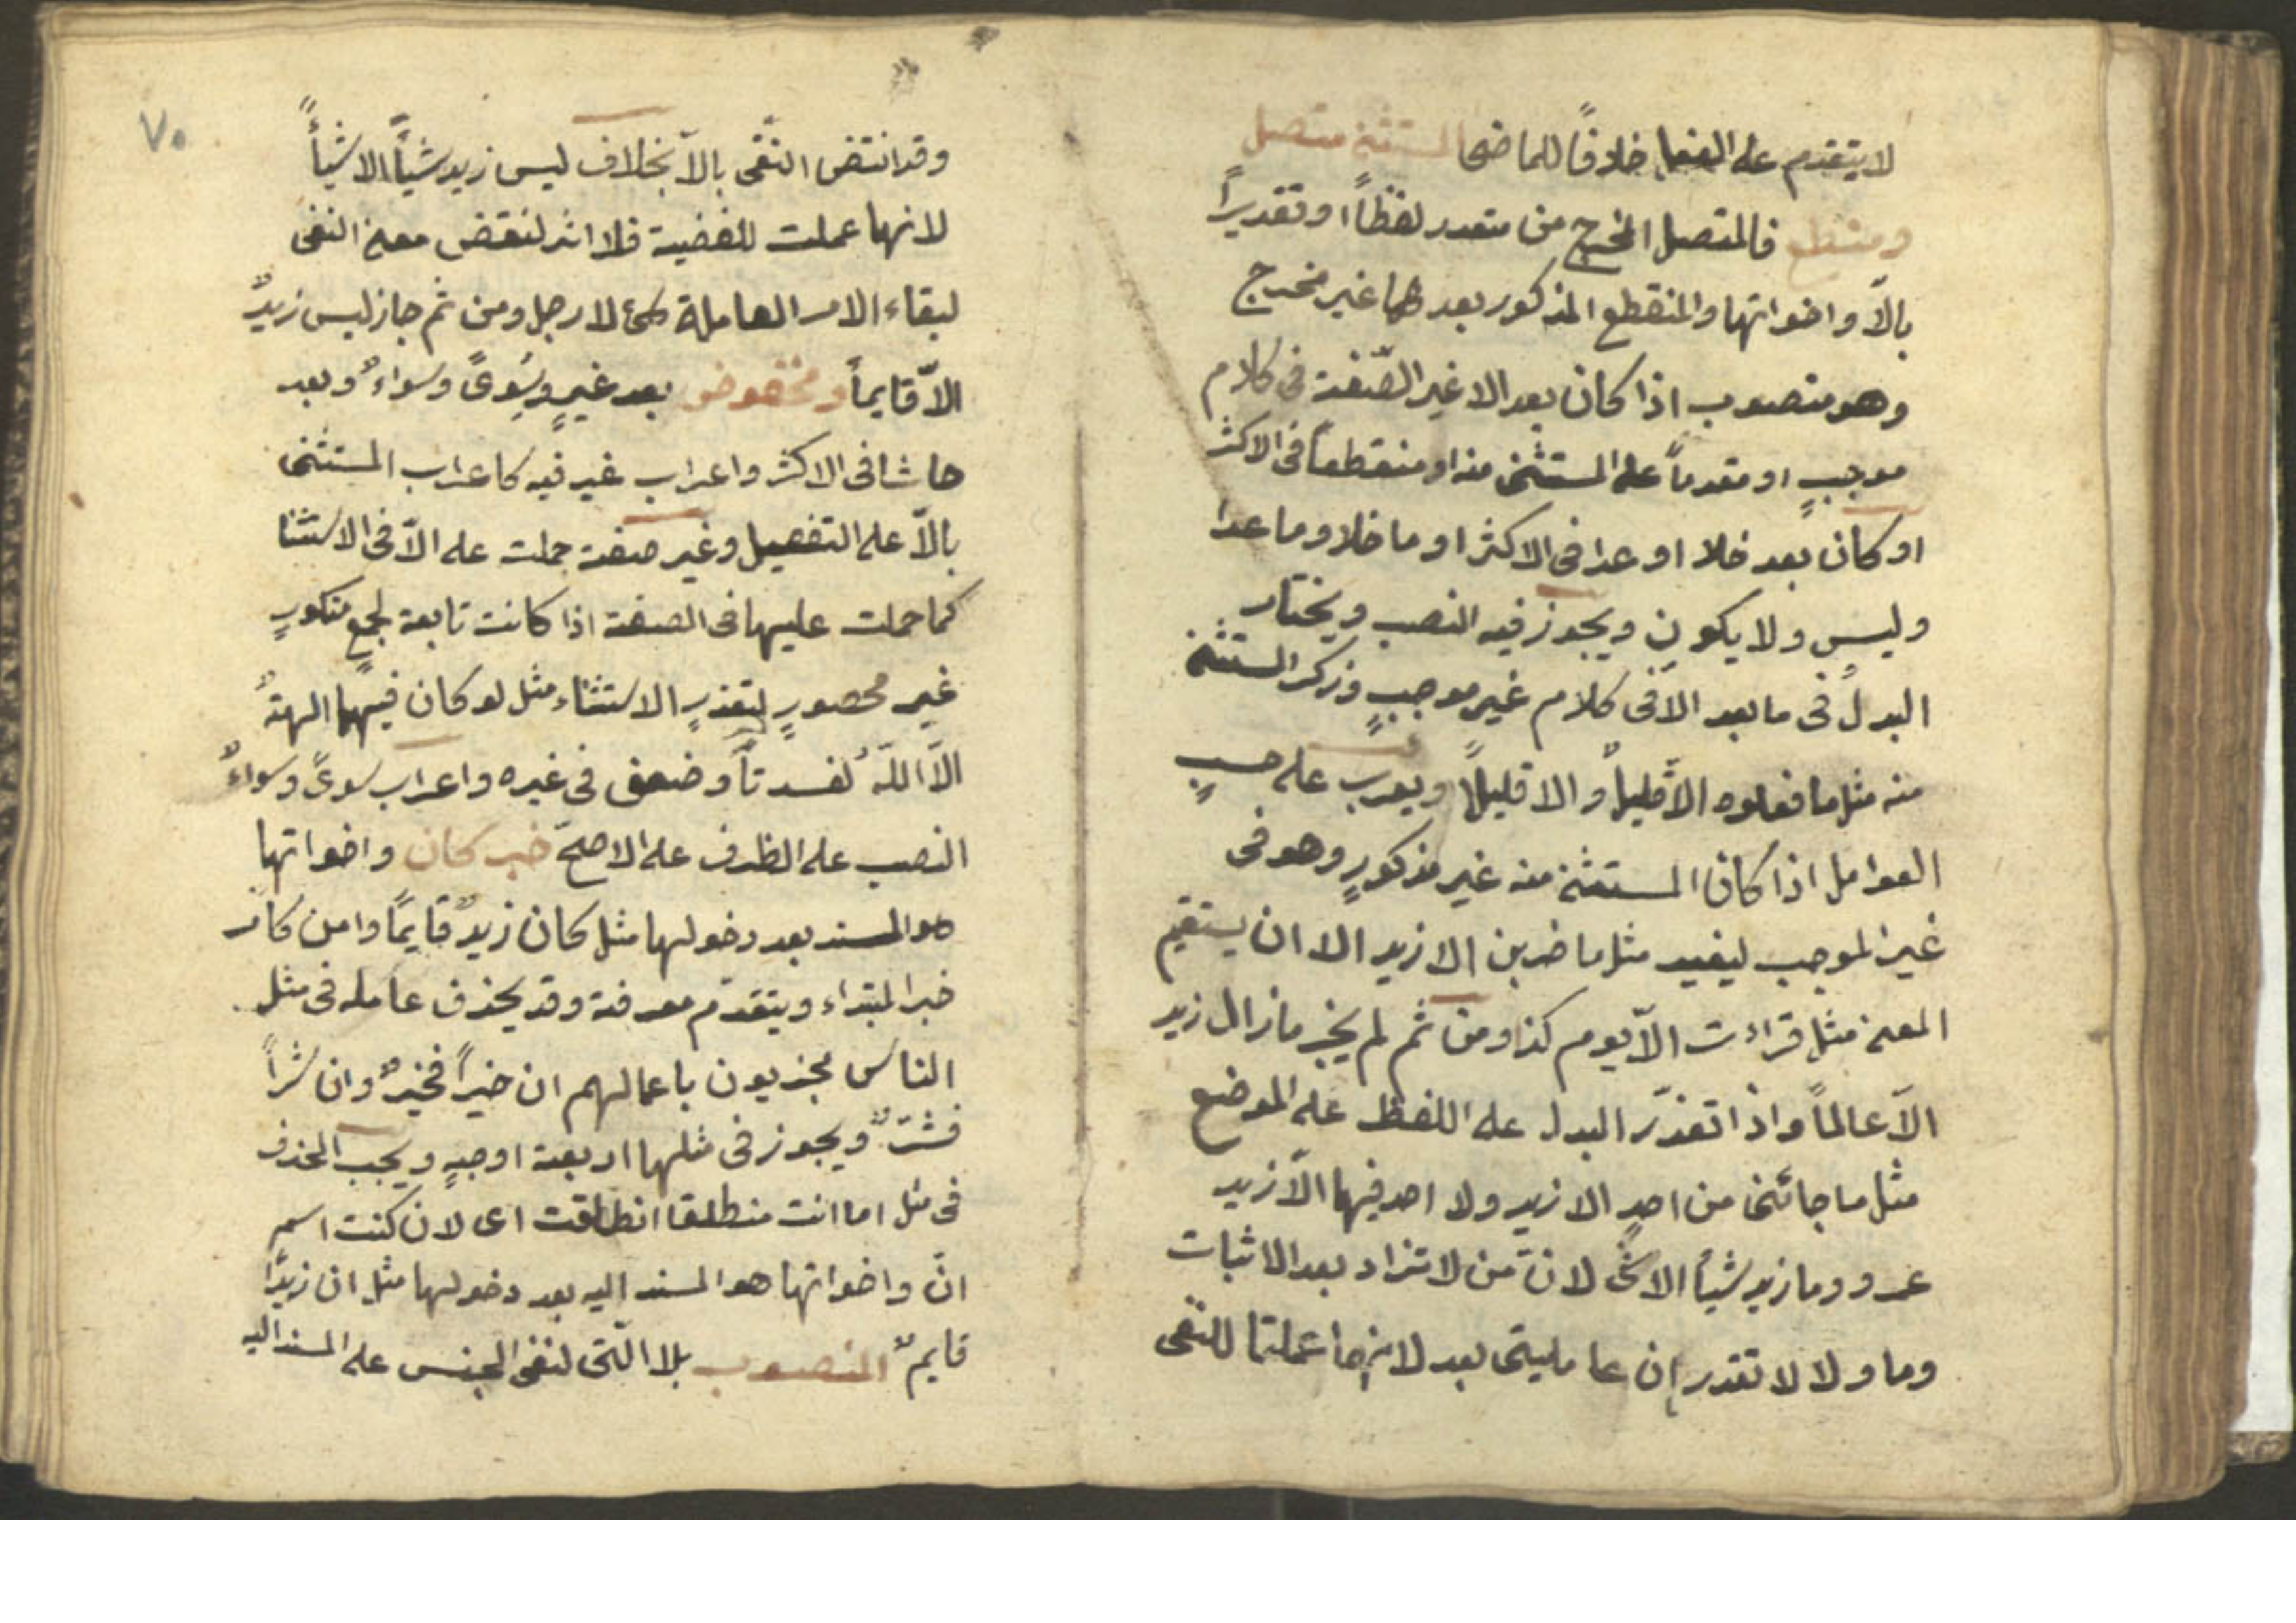 لا يتقدم على الفعل خلافًا للماضى المستثنى متصل
ومنقطع فالمتصل المخرج من متعدد لفظًا او تقديرًا
بالّا واخواتها والمنقطع المذكور بعدها غير مخرج
وهو منصوب اذا كان بعد الا غير الصّفة فى كلام
موجبٍ او مقدماً على المستثنى منه او منقطعاً فى الاكثر
او كان بعد خلا او عدا فى الاكثر او ما خلا وما عدا
وليس ولا يكون ويجوز فيه النصب ويختار
البدل فى ما بعد الّا فى كلام غير موجبٍ وذكر المستثنى
منه مثل ما فعلوه الّا قليلٌ والا قليلًا ويعرب على حسبٍ
العوامل اذا كان المستثنى منه غير مذكورٍ وهو فى
غير الموجب ليفيد مثل ما ضربن الا زيد الا ان يستقيم
المعنى مثل قراءت الّا يوم كذا ومن ثم لم يجز ما زال زيد
الّا عالماً واذا تعذّر البدل على اللفظ على الموضع
مثل ما جائنى من احدٍ الا زيد ولا احد فيها الّا زيد
عمرو وما زيد شيأً الا شئ لانّ من لا تزاد بعد الاثبات
وما ولا لا تقدر ان عاملتى بعد لانها عملتا للنّفى
٧٠
وقد انتقض النّفى بالّا بخلاف ليس زيد شيأً الا شيأً
لانها عملت للفضية فلا اثر لنقض معنى النفى
لبقاء الامر العاملة لاجله ومن ثم جاز ليس زيدٌ
الّا قايماً ومخفوض بعد غيرٍ وسِوىً وسواءٌ وبعد
حاشا فى الاكثر واعراب غير فيه كاعراب المستثنى
بالّا على التفصيل وغير صفة حملت على الّا فى الاستثنا
كما حملت عليها فى الصفة اذا كانت تابعة لجمع منكورٍ
غير محصورٍ لتعذرٍ الاستثناء مثل لو كان فيهما الهةٌ
الّا اللّهُ لفسدتا وضعف فى غيره واعراب سوىً وسواءٌ
النصب على الظرف على الاصحّ خبر كان واخواتها
هو المسند بعد دخولها مثل كان زيدٌ قايمًا وامره كامر
خبر المبتداء ويتقدّم معرفة وقد يحذف عامله فى مثل
الناس مجزيون باعمالهم ان خيراً فخيرٌ وان شراً
فشرٌّ ويجوز فى مثلها اربعة اوجهٍ ويجب الحذف
فى مثل اما انت منطلقا انطلقت اى لان كنت اسم
انّ واخواتها هو المسند اليه بعد دخولها مثل ان زيدًا
قايمٌ المنصوب بلا الّتى لنفى الجنس على المسند اليه